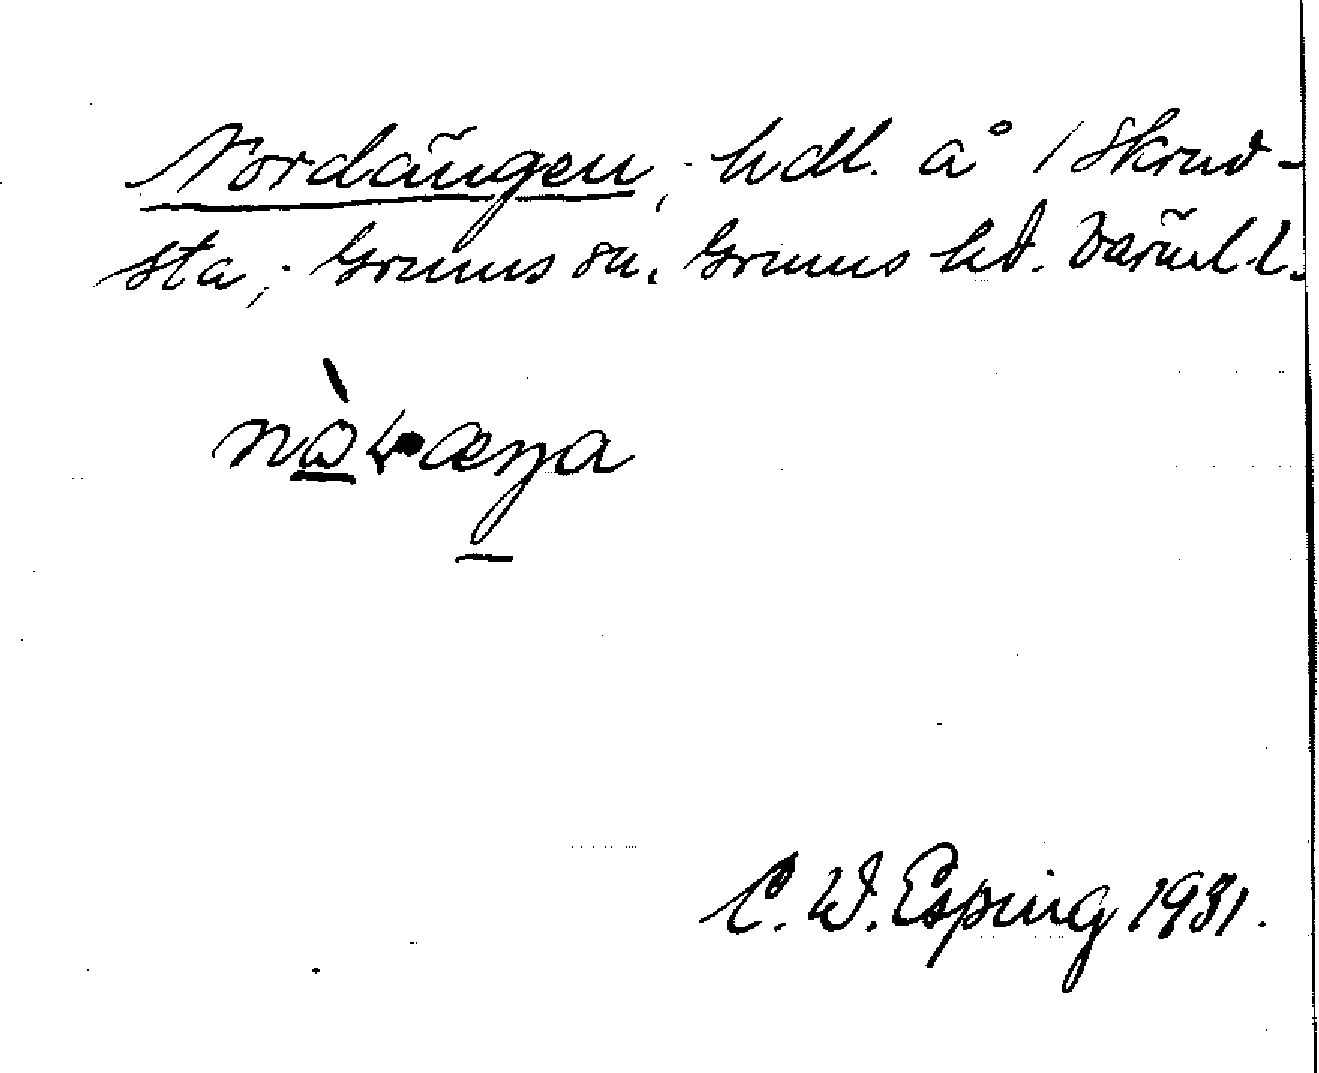 Nordängen, hdl. å 1 Skruv-
sta, Grums sn. Grums hd. Värml l.
C. W. Esping 1931.